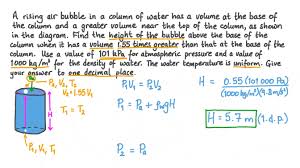 A rising air bubble in a column of water has a volume at the base of
the column and a greater volume near the top of the column, as shown
in the diagram. Find the height of the bubble above the base of the
column when it has a volume 1.55 times greater than that at the base of
the column. Use a value of 101 kPa for atmospheric pressure and a value of
1000 kg/m³ for the density of water. The water temperature is uniform. Give
your answer to one decimal place.
P₂, V₂, T₂
V₂ = 1.55V₁
T₁ = T₂
H
P₁, V₁, T₁
P₁V₁ = P₂V₂
P₁ = Pₐ + ρwgH
P₂ = Pₐ
H = 0.55 (101 000 Pa)
(1000 kg/m³)(9.8 m/s²)
H = 5.7 m (1.d.p.)